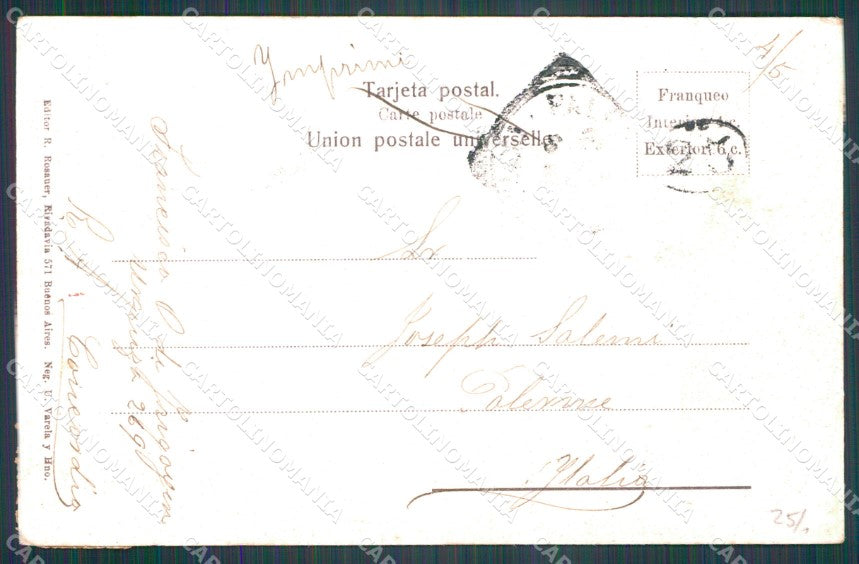 Imprimé
4/5
Tarjeta postal.
Carte postale
Union postale universelle.
Franqueo
Interior 4 c.
Exterior 6 c.
Sr
Joseph Salemi
Palerme
Italia
Francisco P. de
Uruguay 269
Concordia
Editor R. Rosauer, Rivadavia 571 Buenos Aires. Neg. U. Varela y Hno.
25/
CARTOLINOMANIA